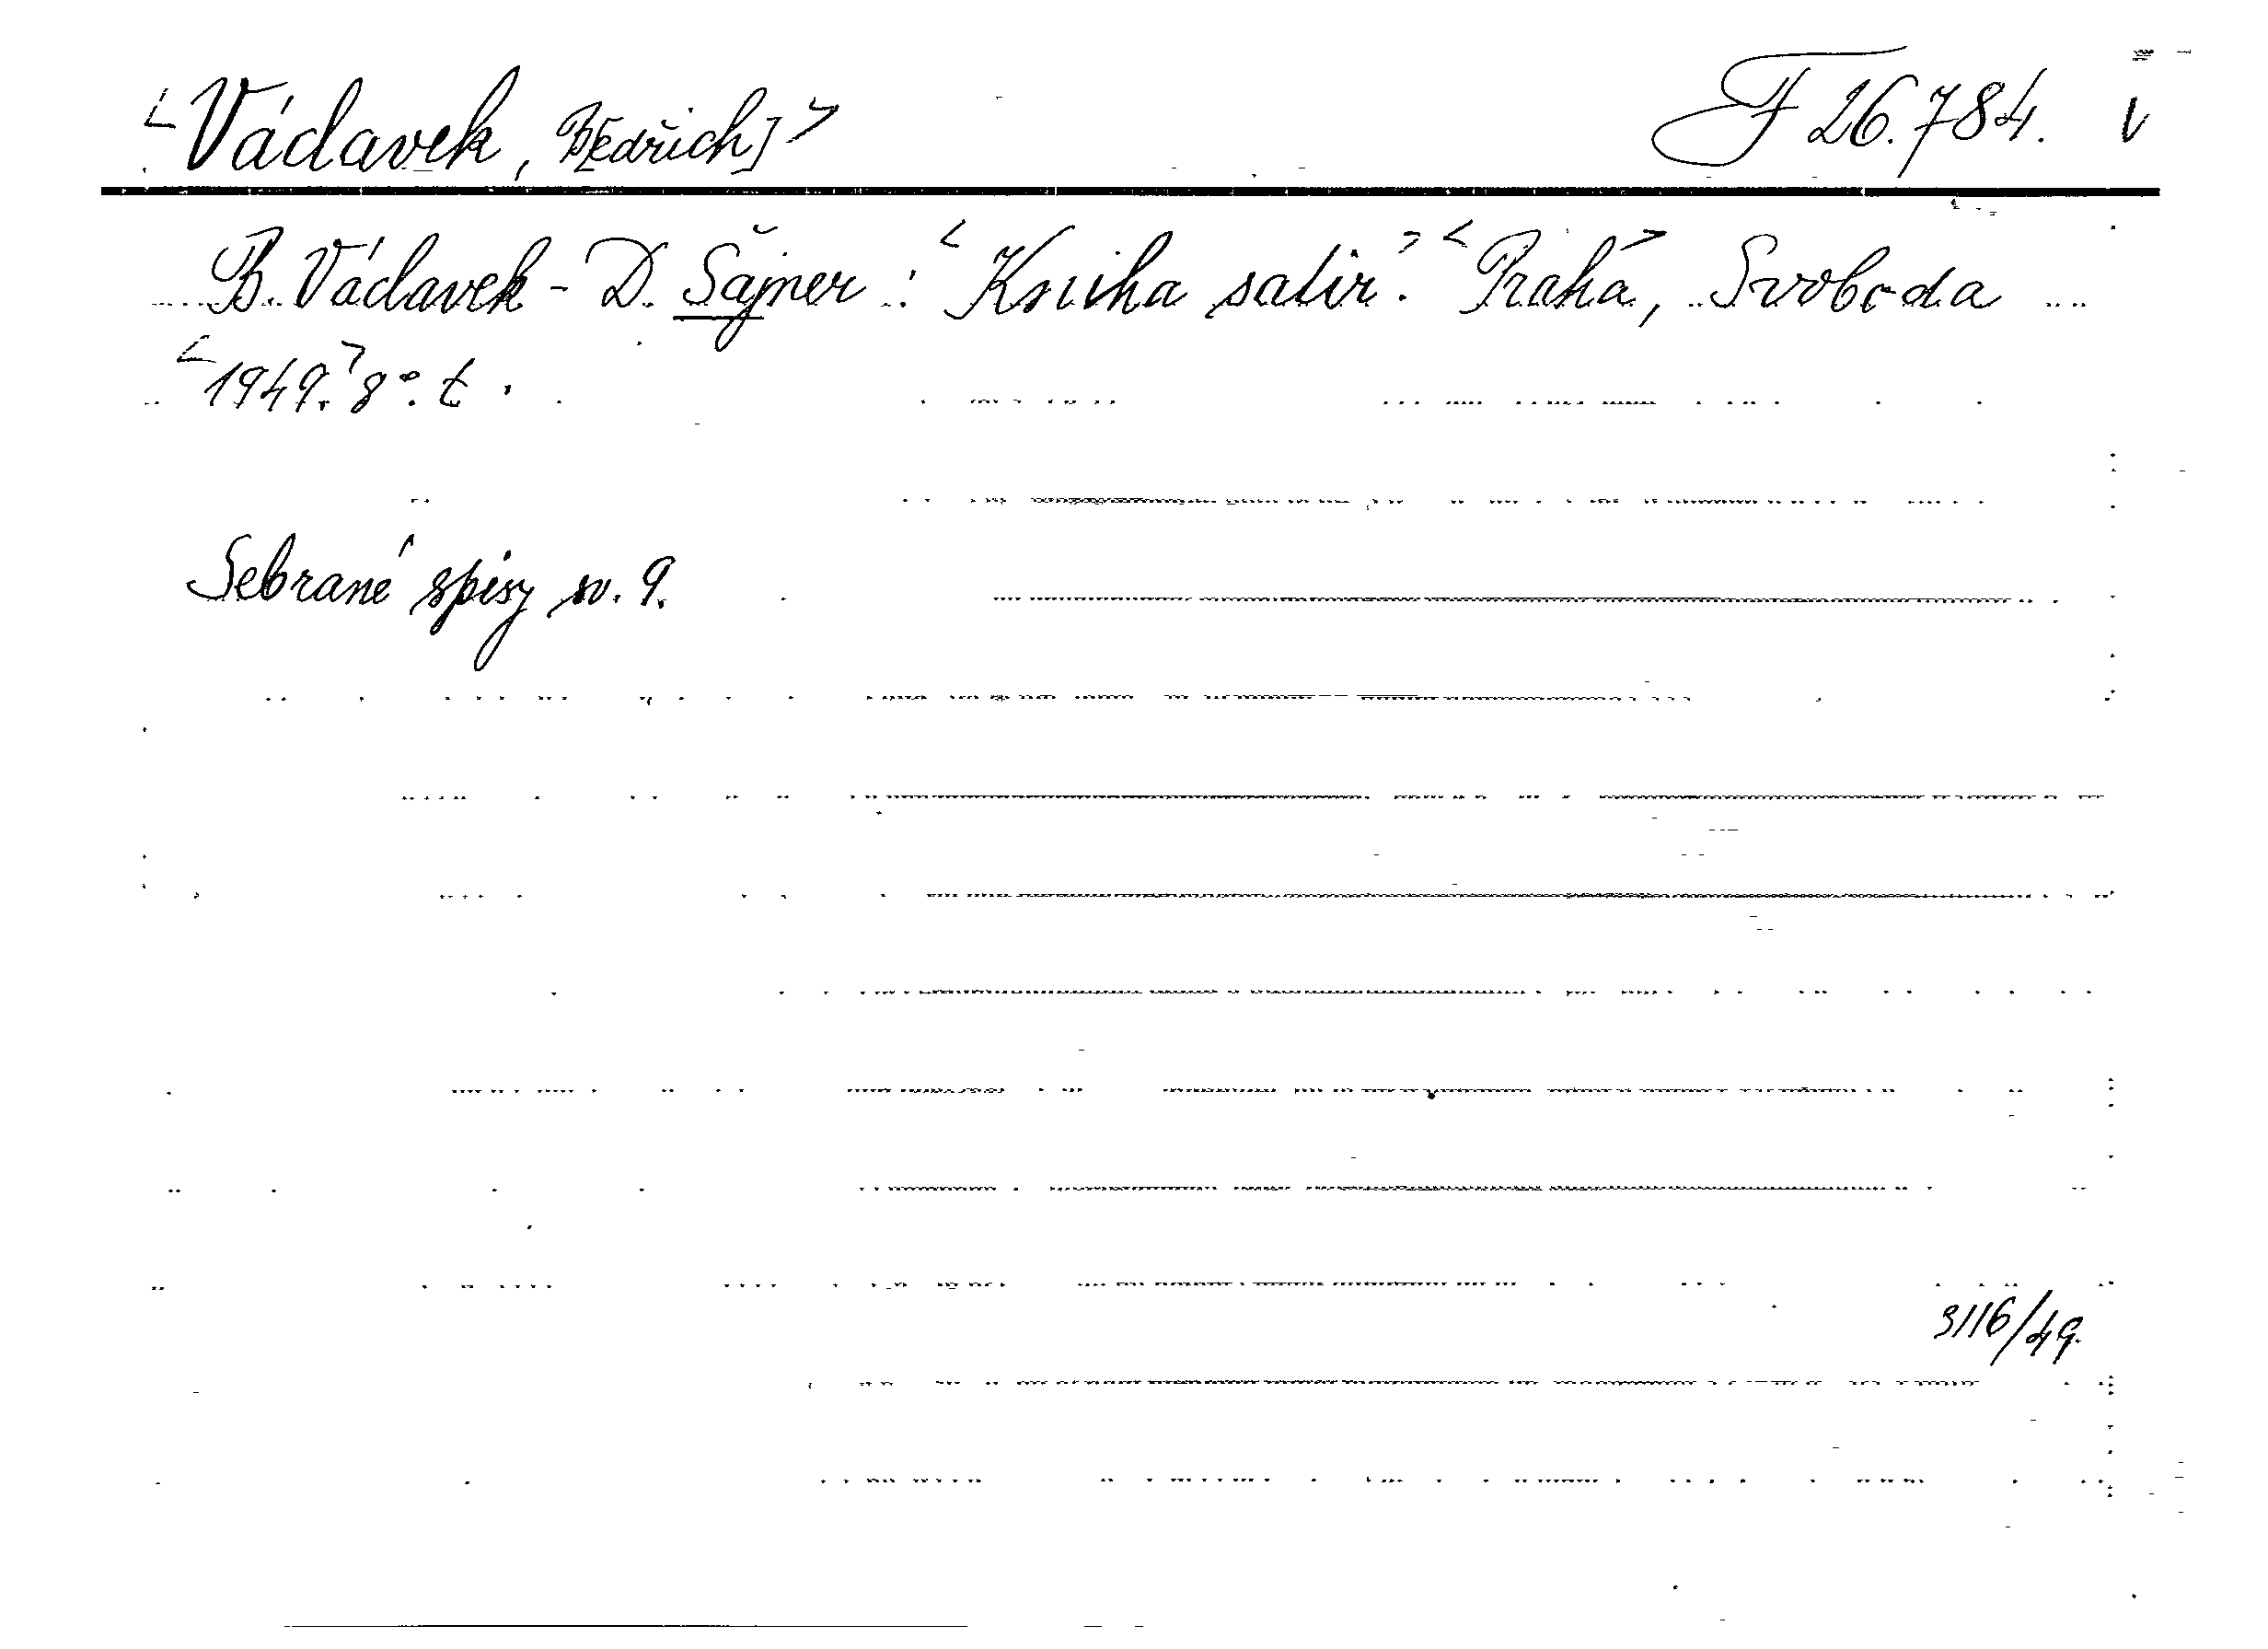 <Václavek, B[edřich]> F 26.784. V
B. Václavek - D. Šajner: <Kniha satir.> <Praha>, Svoboda
<1949.> 8°. t.
Sebrané spisy sv. 9.
3116/49.